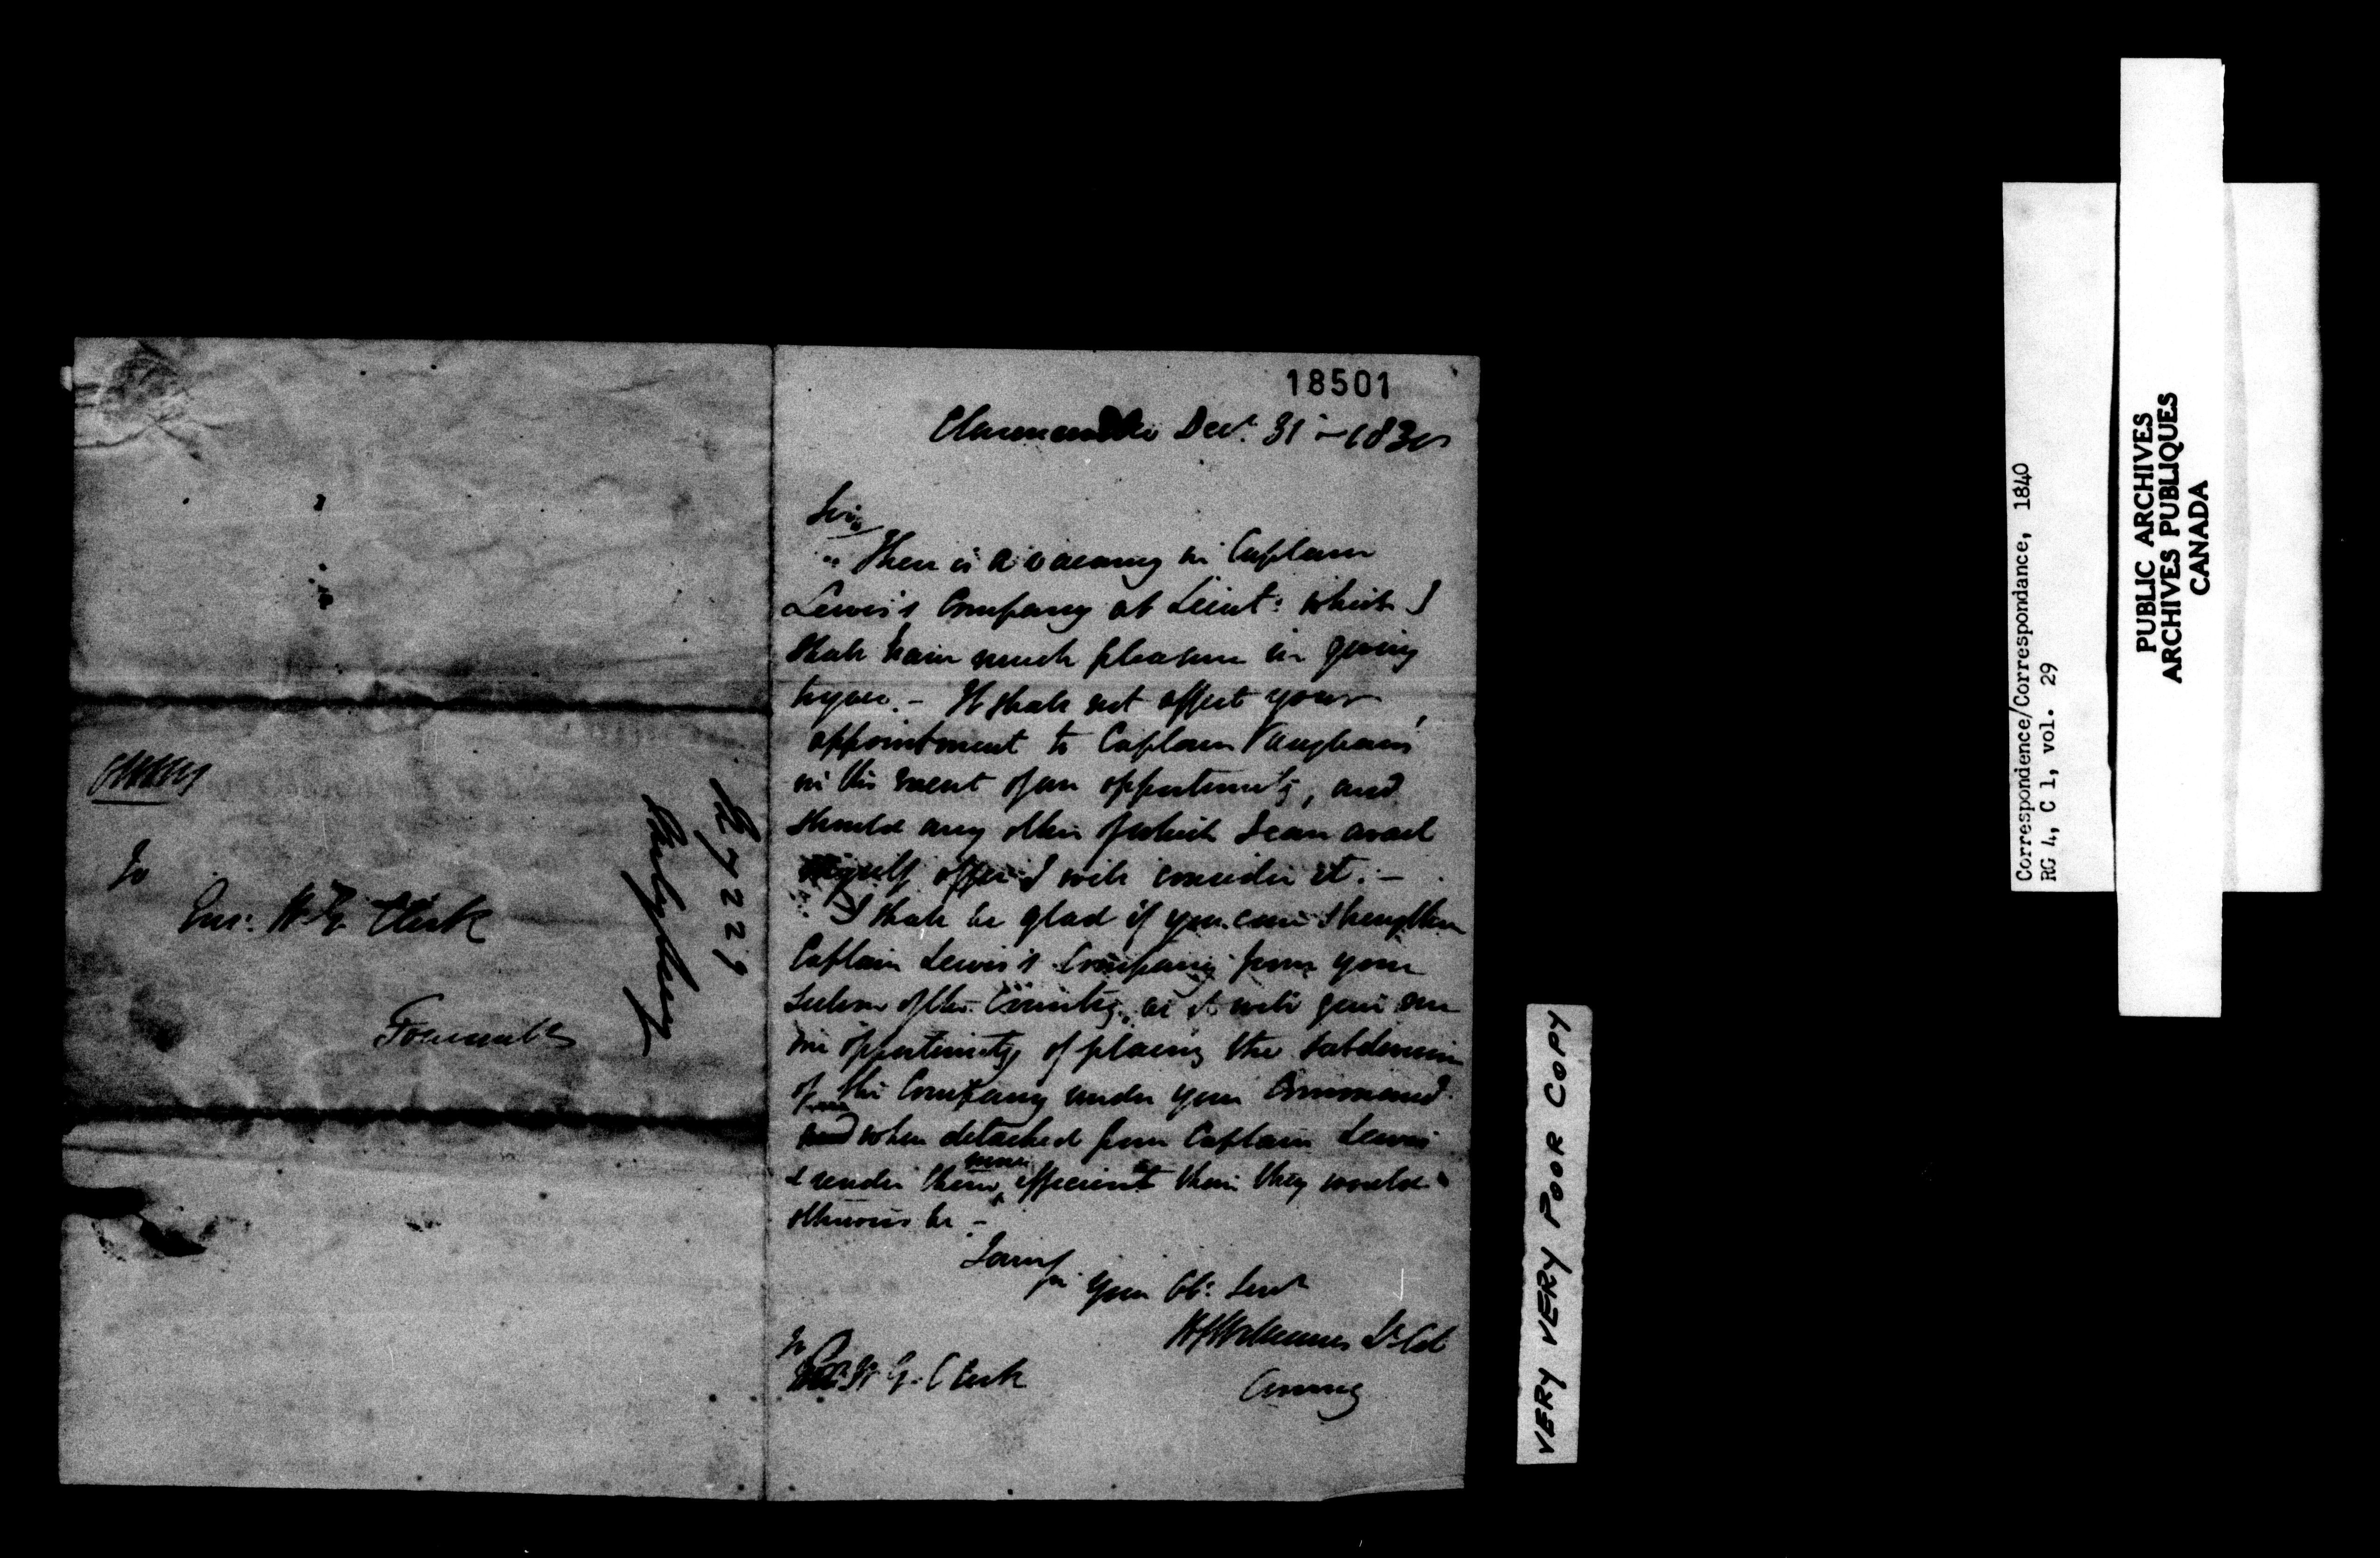 18501
Clarenceville Decr. 31st 183
Sir,
There is a vacancy in Captain
Lewis's Company of Lieut: which I
shall have much pleasure in giving
to you. - It shall not affect your
appointment to Captain Vaughan's
in the event of an opportunity, and
should any other of which I can avail
myself offer I will consider it. -
I shall be glad if you can strengthen
Captain Lewis's Company from your
section of the Country, as it will give me
an opportunity of placing the Subdivision
of the Company under your Command
when detached from Captain Lewis
& render them more efficient than they would
otherwise be -
I am
Sir Your Ob: Servt
Lt Col
Comng
To
W. G. Clerk
To
Ens: W. G. Clerk
No 7229
VERY VERY POOR COPY
Correspondence/Correspondance, 1840
RG 4, C 1, vol. 29
PUBLIC ARCHIVES
ARCHIVES PUBLIQUES
CANADA